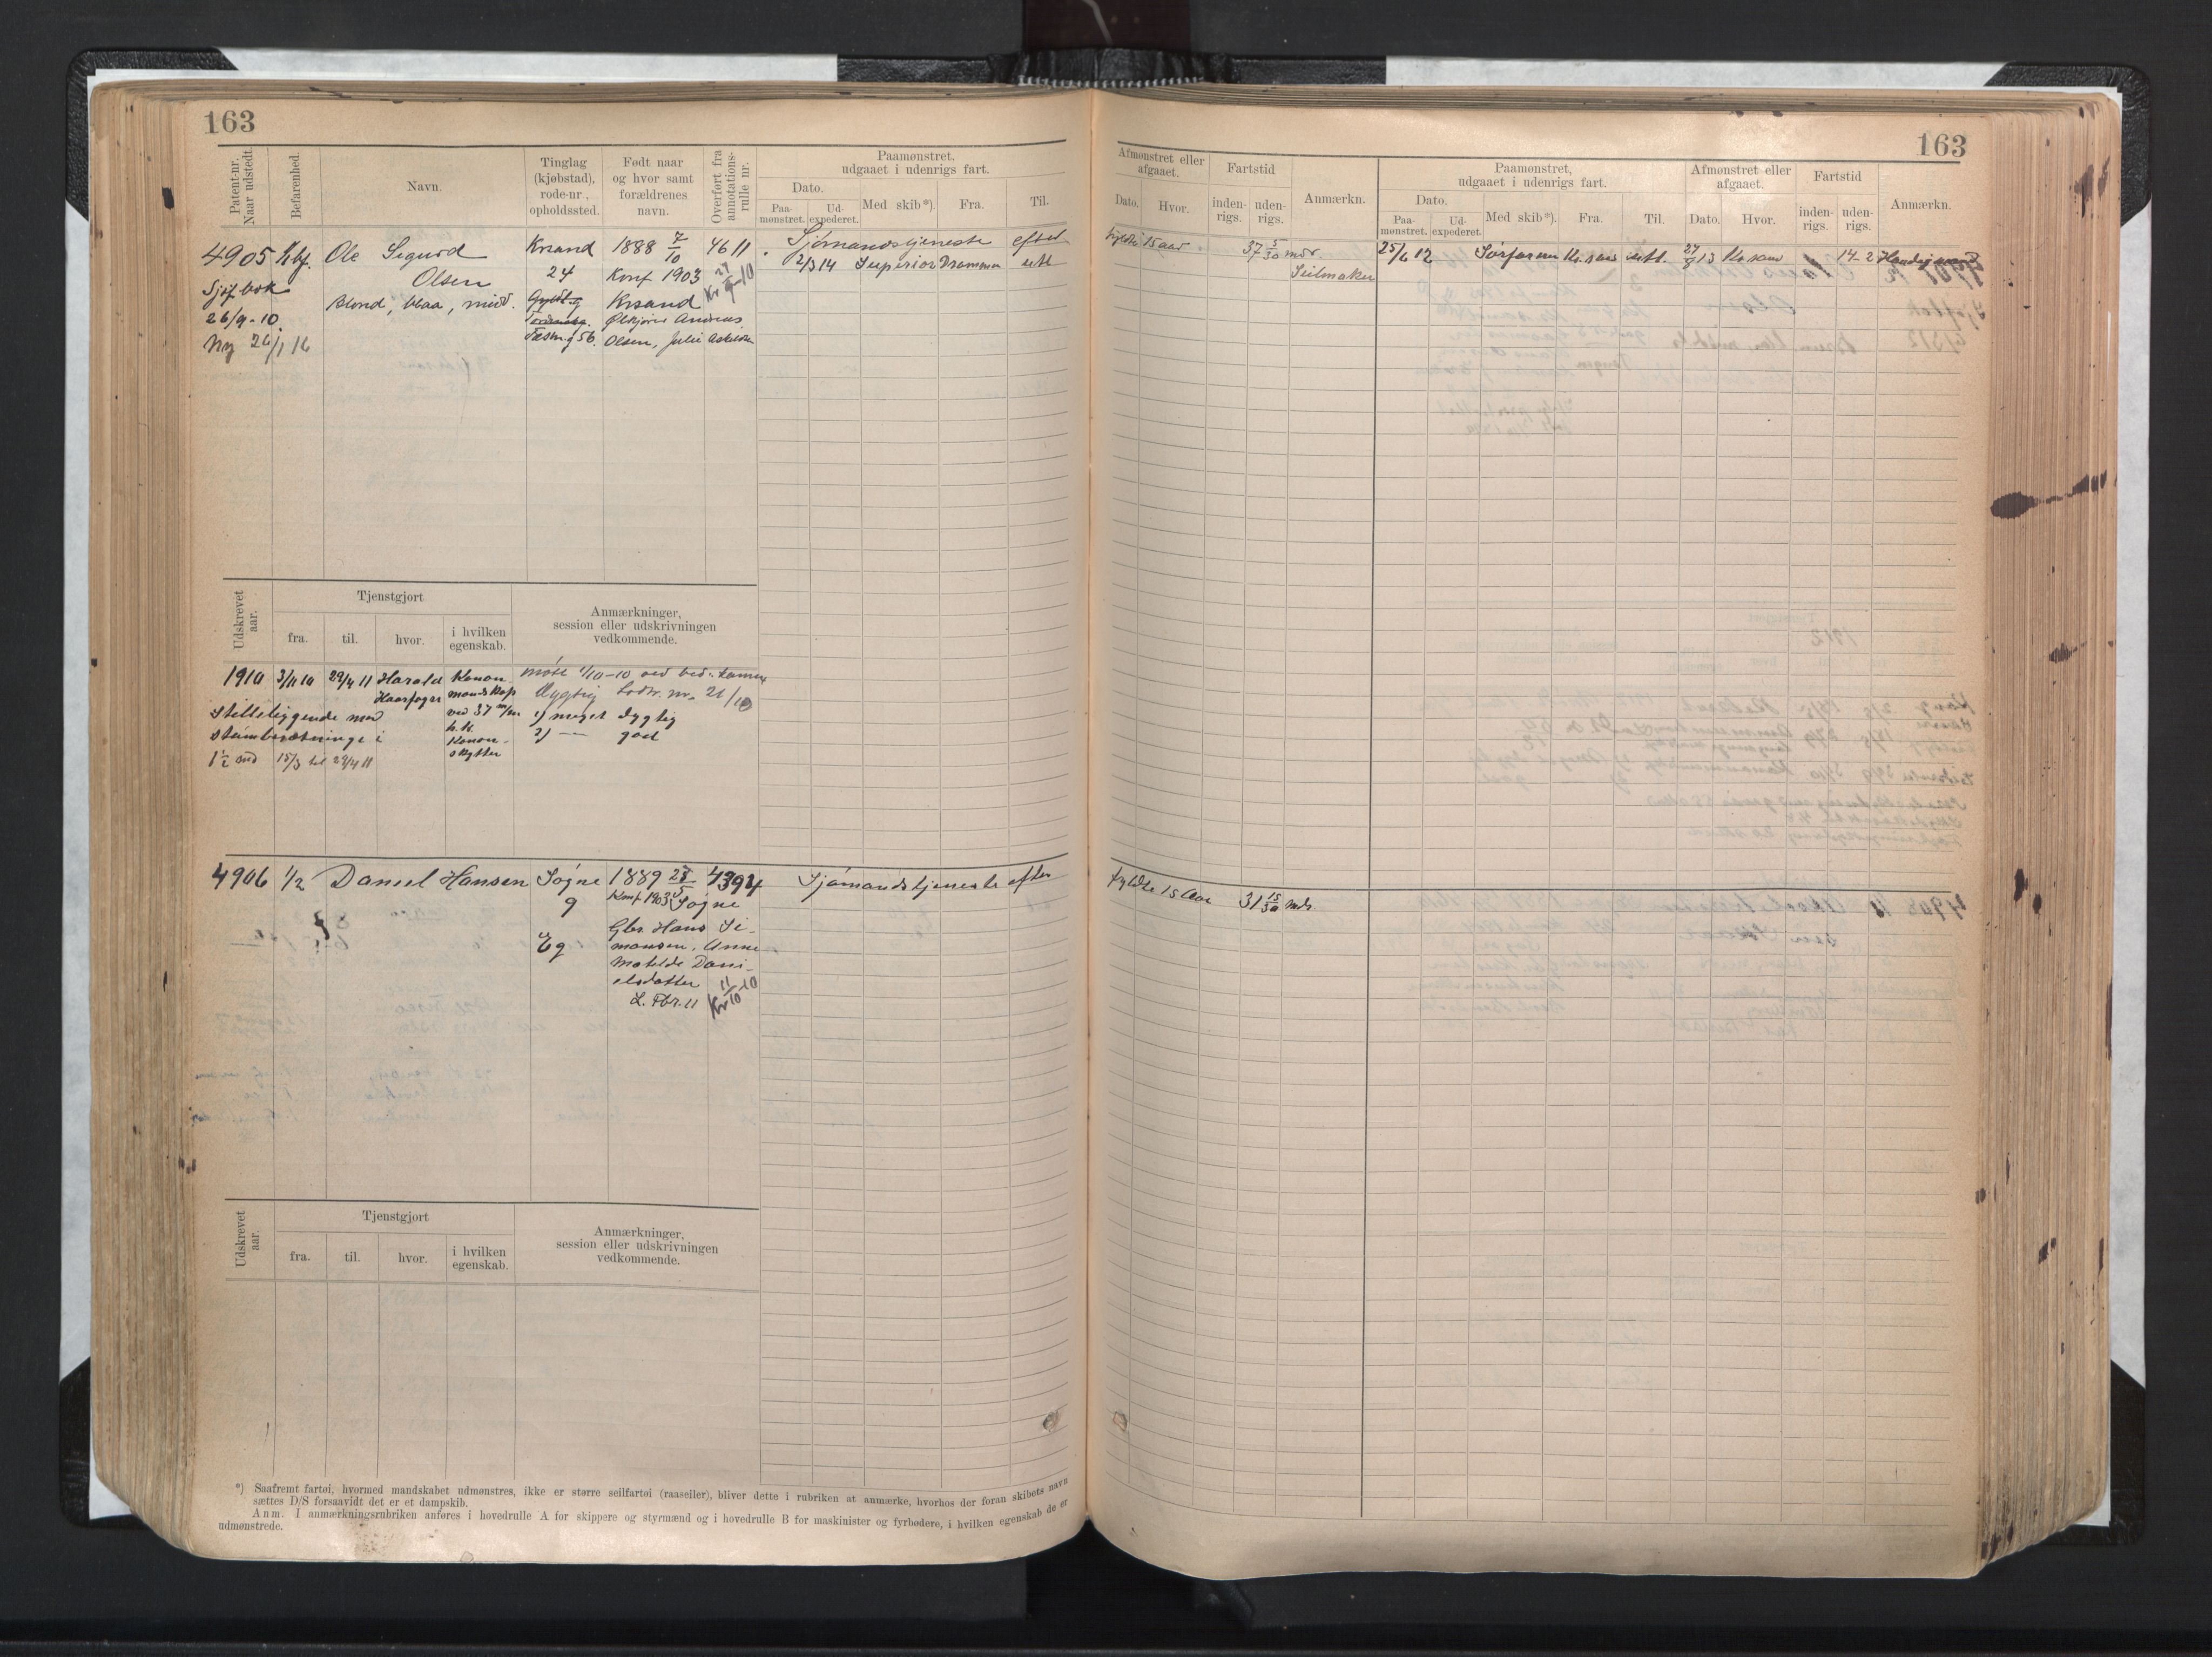 163
Patent-nr. Naar udstedt.
Befarenhed.
Navn.
Tinglag (kjøbstad), rode-nr., opholdssted.
Født naar og hvor samt forældrenes navn.
Overført fra annotations-rulle nr.
Paamønstret, udgaaet i udenrigs fart.
Dato.
Paa-mønstret.
Ud-expederet.
Med skib*).
Fra.
Til.
4905
Ole Sigurd
Olsen
Sjøf bok
26/9-10.
Ny 26/1 16
Blond, blaa, midd.
Krsand
24
1888 7/10
Konf 1903
Krsand
Andreas
Olsen, Julie
4611
Kr 27/9-10
Sjømandstjeneste efter
2/3 14 Superior Drammen
Udskrevet aar.
Tjenstgjort
fra.
til.
hvor.
i hvilken egenskab.
Anmærkninger, session eller udskrivningen vedkommende.
1910 3/11 10 29/4 11 Harald
Haarfagre
Kanon
mandskap
ved 37 m/m
h.k.
Kanon-
skytter
Møtt 1/10-10
Dygtig Lodtr. nr. 21/10
1) meget dygtig
2) — god
Stilleliggende med
1 1/2 md 15/3 til 29/4 11
4906 1/2 Daniel Hansen Søgne 1889 25/5 4394 Sjømandstjeneste efter
9
Eg
Konf 1903 Søgne
Gbr. Hans Si-
monsen, Anne
Matilde Dani-
elsdatter
L. Fbr. 11
Kr 11/10-10
Udskrevet aar.
Tjenstgjort
fra.
til.
hvor.
i hvilken egenskab.
Anmærkninger, session eller udskrivningen vedkommende.
*) Saafremt fartøi, hvormed mandskabet udmønstres, ikke er større seilfartøi (raaseiler), bliver dette i rubriken at anmærke, hvorhos der foran skibets navn
sættes D/S forsaavidt det er et dampskib.
Anm. I anmærkningsrubriken anføres i hovedrulle A for skippere og styrmænd og i hovedrulle B for maskinister og fyrbødere, i hvilken egenskab de er
udmønstrede.
163
Afmønstret eller afgaaet.
Dato.
Hvor.
Fartstid
inden-rigs.
uden-rigs.
Anmærkn.
Paamønstret, udgaaet i udenrigs fart.
Dato.
Paa-mønstret.
Ud-expederet.
Med skib*).
Fra.
Til.
Afmønstret eller afgaaet.
Dato.
Hvor.
Fartstid
inden-rigs.
uden-rigs.
Anmærkn.
fyldte 15 aar 37 5/30 mdr.
Seilmaker
25/6 12
Kr.sand
14-2
fyldte 15 Aar 31 15/30 mdr.